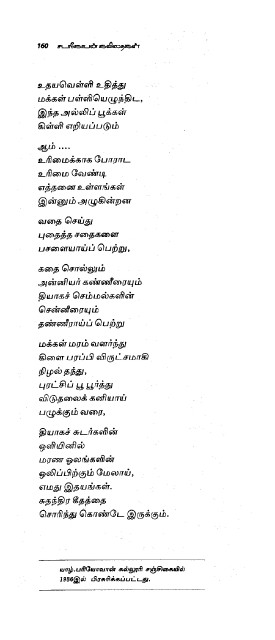 160 சடரிகையன் கவிதைகள்
உதயவெள்ளி உதித்து
மக்கள் பள்ளியெழுந்திட,
இந்த அல்லிப் பூக்கள்
கிள்ளி எறியப்படும்
ஆம் ....
உரிமைக்காக போராட
உரிமை வேண்டி
எத்தனை உள்ளங்கள்
இன்னும் அழுகின்றன
வதை செய்து
புதைத்த சதைகளை
பசளையாய்ப் பெற்று,
கதை சொல்லும்
அன்னியர் கண்ணீரையும்
தியாகச் செம்மல்களின்
செந்நீரையும்
தண்ணீராய்ப் பெற்று
மக்கள் மரம் வளர்ந்து
கிளை பரப்பி விருட்சமாகி
நிழல் தந்து,
புரட்சிப் பூ பூர்த்து
விடுதலைக் கனியாய்
பழுக்கும் வரை,
தியாகச் சுடர்களின்
ஒளியினில்
மரண ஓலங்களின்
ஒலிப்பிற்கும் மேலாய்,
எமது இதயங்கள்.
சுதந்திர கீதத்தை
சொரிந்து கொண்டே இருக்கும்.
யாழ்.பரியோவான் கல்லூரி சஞ்சிகையில்
1986இல் பிரசுரிக்கப்பட்டது.